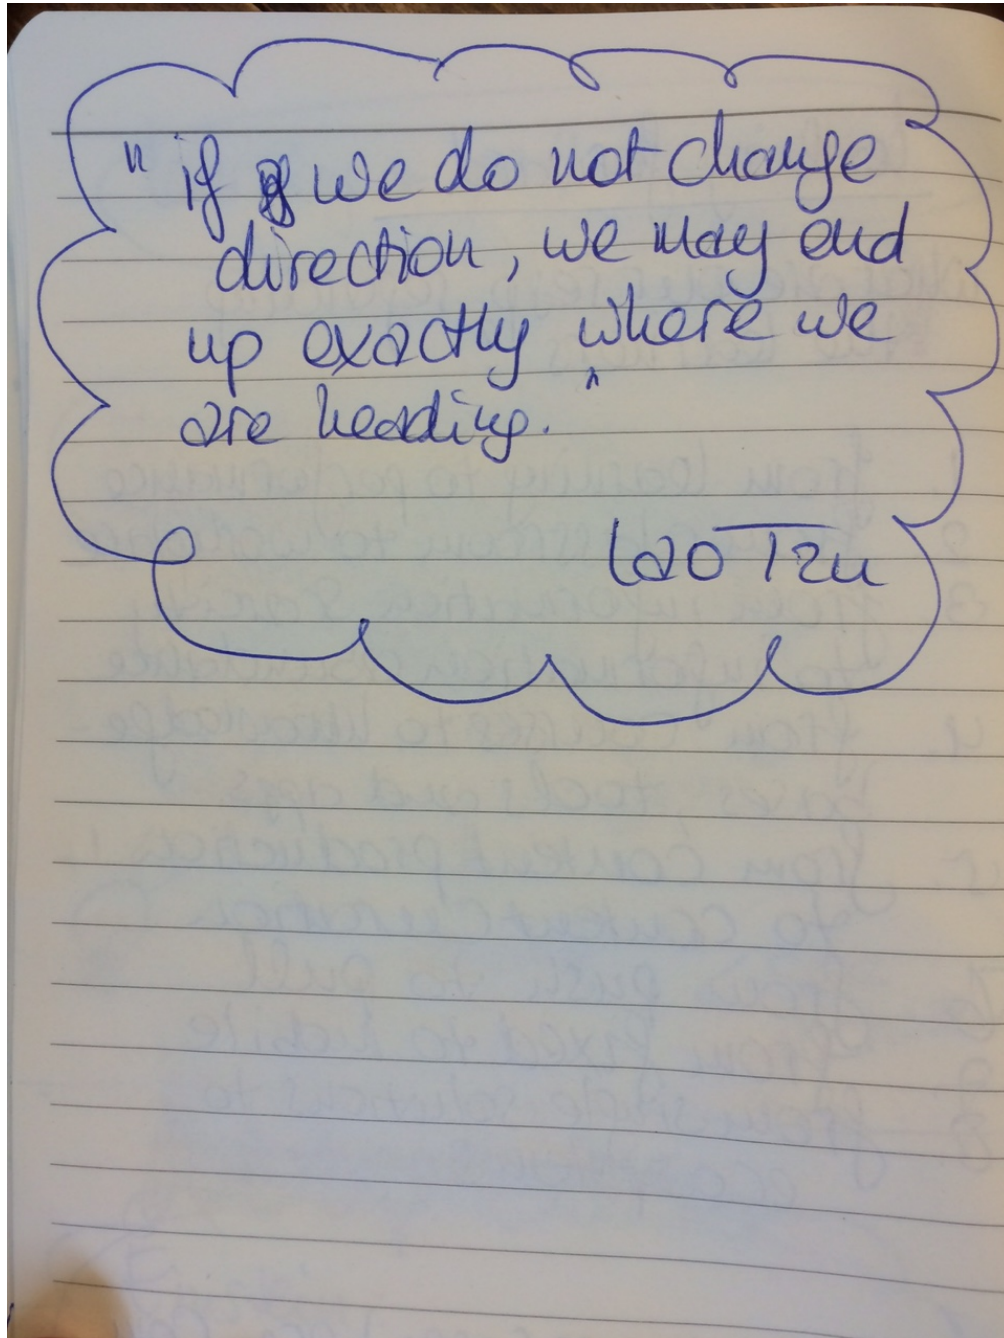 "if we do not change
direction, we may end
up exactly where we
are heading."
Lao Tzu